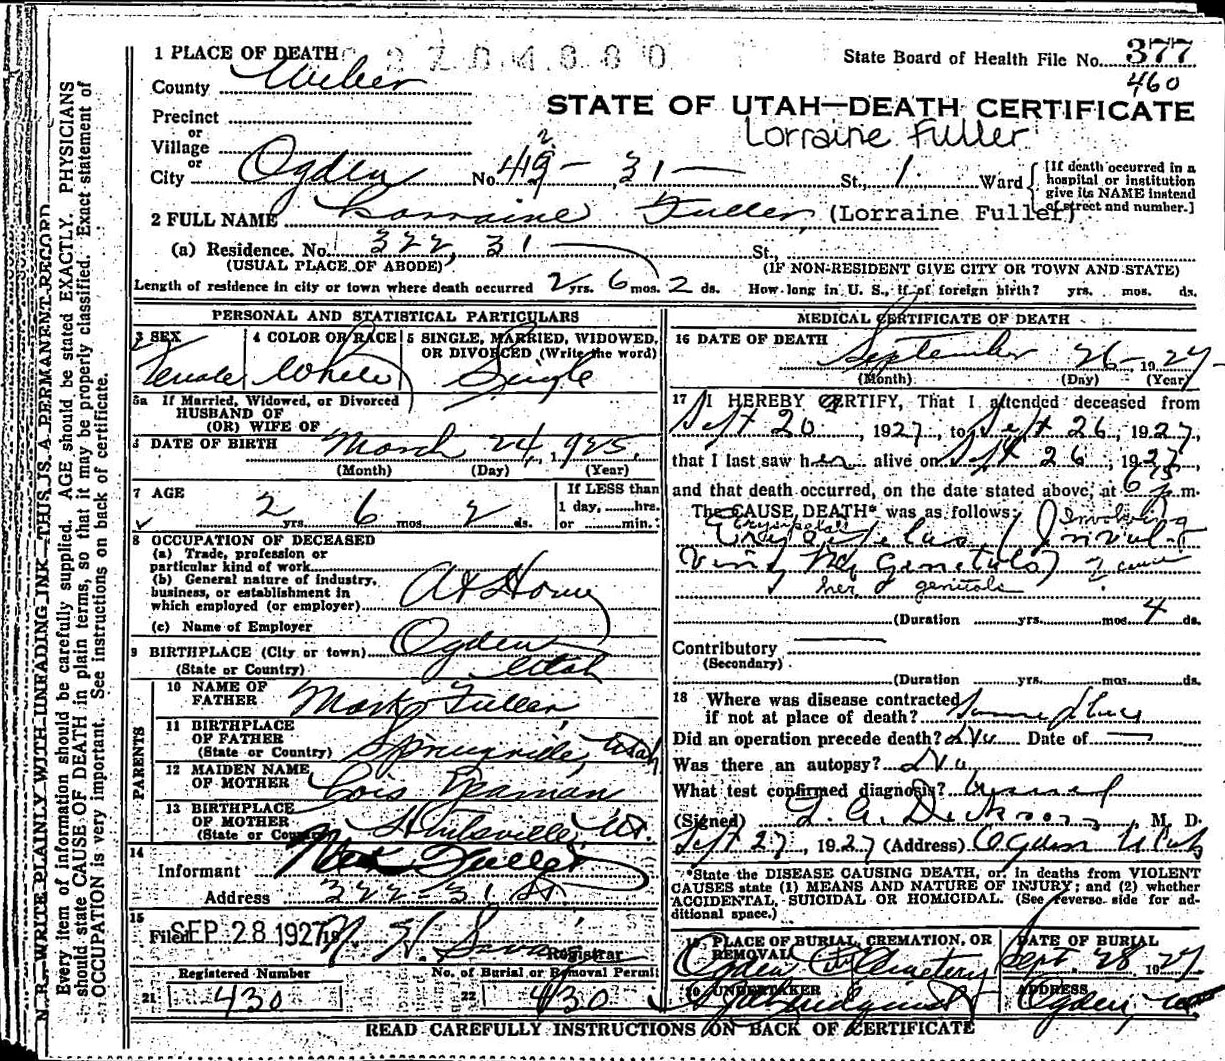 1 PLACE OF DEATH
State Board of Health File No. 377
460
County Weber
STATE OF UTAH—DEATH CERTIFICATE
Precinct
or
Village
Lorraine Fuller
or
City Ogden No. 31 — St., 1. Ward
[If death occurred in a hospital or institution give its NAME instead of street and number.]
2 FULL NAME Lorraine Fuller (Lorraine Fuller)
(a) Residence. No. 322, 31 St.,
(USUAL PLACE OF ABODE) (IF NON-RESIDENT GIVE CITY OR TOWN AND STATE)
Length of residence in city or town where death occurred 2 yrs. 6 mos. 2 ds. How long in U. S., if of foreign birth? yrs. mos. ds.
PERSONAL AND STATISTICAL PARTICULARS
3 SEX
Female
4 COLOR OR RACE
White
5 SINGLE, MARRIED, WIDOWED,
OR DIVORCED (Write the word)
Single
5a If Married, Widowed, or Divorced
HUSBAND OF
(OR) WIFE OF
6 DATE OF BIRTH March 24, 1925.
(Month) (Day) (Year)
7 AGE
2 yrs. 6 mos. 2 ds.
If LESS than
1 day, hrs.
or min.
8 OCCUPATION OF DECEASED
(a) Trade, profession or
particular kind of work
(b) General nature of industry,
business, or establishment in
which employed (or employer) At Home
(c) Name of Employer
9 BIRTHPLACE (City or town) Ogden
(State or Country) Utah
PARENTS
10 NAME OF
FATHER Mark Fuller
11 BIRTHPLACE
OF FATHER
(State or Country) Springville, Utah
12 MAIDEN NAME
OF MOTHER Lois
13 BIRTHPLACE
OF MOTHER
(State or Country) Huntsville, Ut.
14
Informant Fuller
Address 322 - 31 St.
15
Filed SEP 28 1927
Registrar
Registered Number
21 430
No. of Burial or Removal Permit
22 430
MEDICAL CERTIFICATE OF DEATH
16 DATE OF DEATH
September 26 - 1927
(Month) (Day) (Year)
17 I HEREBY CERTIFY, That I attended deceased from
Sept 20, 1927, to Sept 26, 1927,
that I last saw her alive on Sept 26, 1927,
and that death occurred, on the date stated above, at 6 15 p.m.
The CAUSE DEATH* was as follows:
Erysipelas (Involving
Erysipelas (Involv-
ving her Genitals)
her genitals
(Duration yrs. mos. 4 ds.
Contributory
(Secondary)
(Duration yrs. mos. ds.
18 Where was disease contracted
if not at place of death? Same place
Did an operation precede death? No Date of —
Was there an autopsy? No
What test confirmed diagnosis?
(Signed) M. D.
Sept 27, 1927 (Address) Ogden Utah
*State the DISEASE CAUSING DEATH, or, in deaths from VIOLENT
CAUSES state (1) MEANS AND NATURE OF INJURY; and (2) whether
ACCIDENTAL, SUICIDAL OR HOMICIDAL. (See reverse side for ad-
ditional space.)
19 PLACE OF BURIAL, CREMATION, OR
REMOVAL
Ogden City Cemetery
DATE OF BURIAL
Sept. 28 1927
20 UNDERTAKER
ADDRESS
Ogden, Ut
READ CAREFULLY INSTRUCTIONS ON BACK OF CERTIFICATE
N. B. WRITE PLAINLY WITH UNFADING INK—THIS IS A PERMANENT RECORD
Every item of information should be carefully supplied. AGE should be stated EXACTLY. PHYSICIANS
should state CAUSE OF DEATH in plain terms, so that it may be properly classified. Exact statement of
OCCUPATION is very important. See instructions on back of certificate.